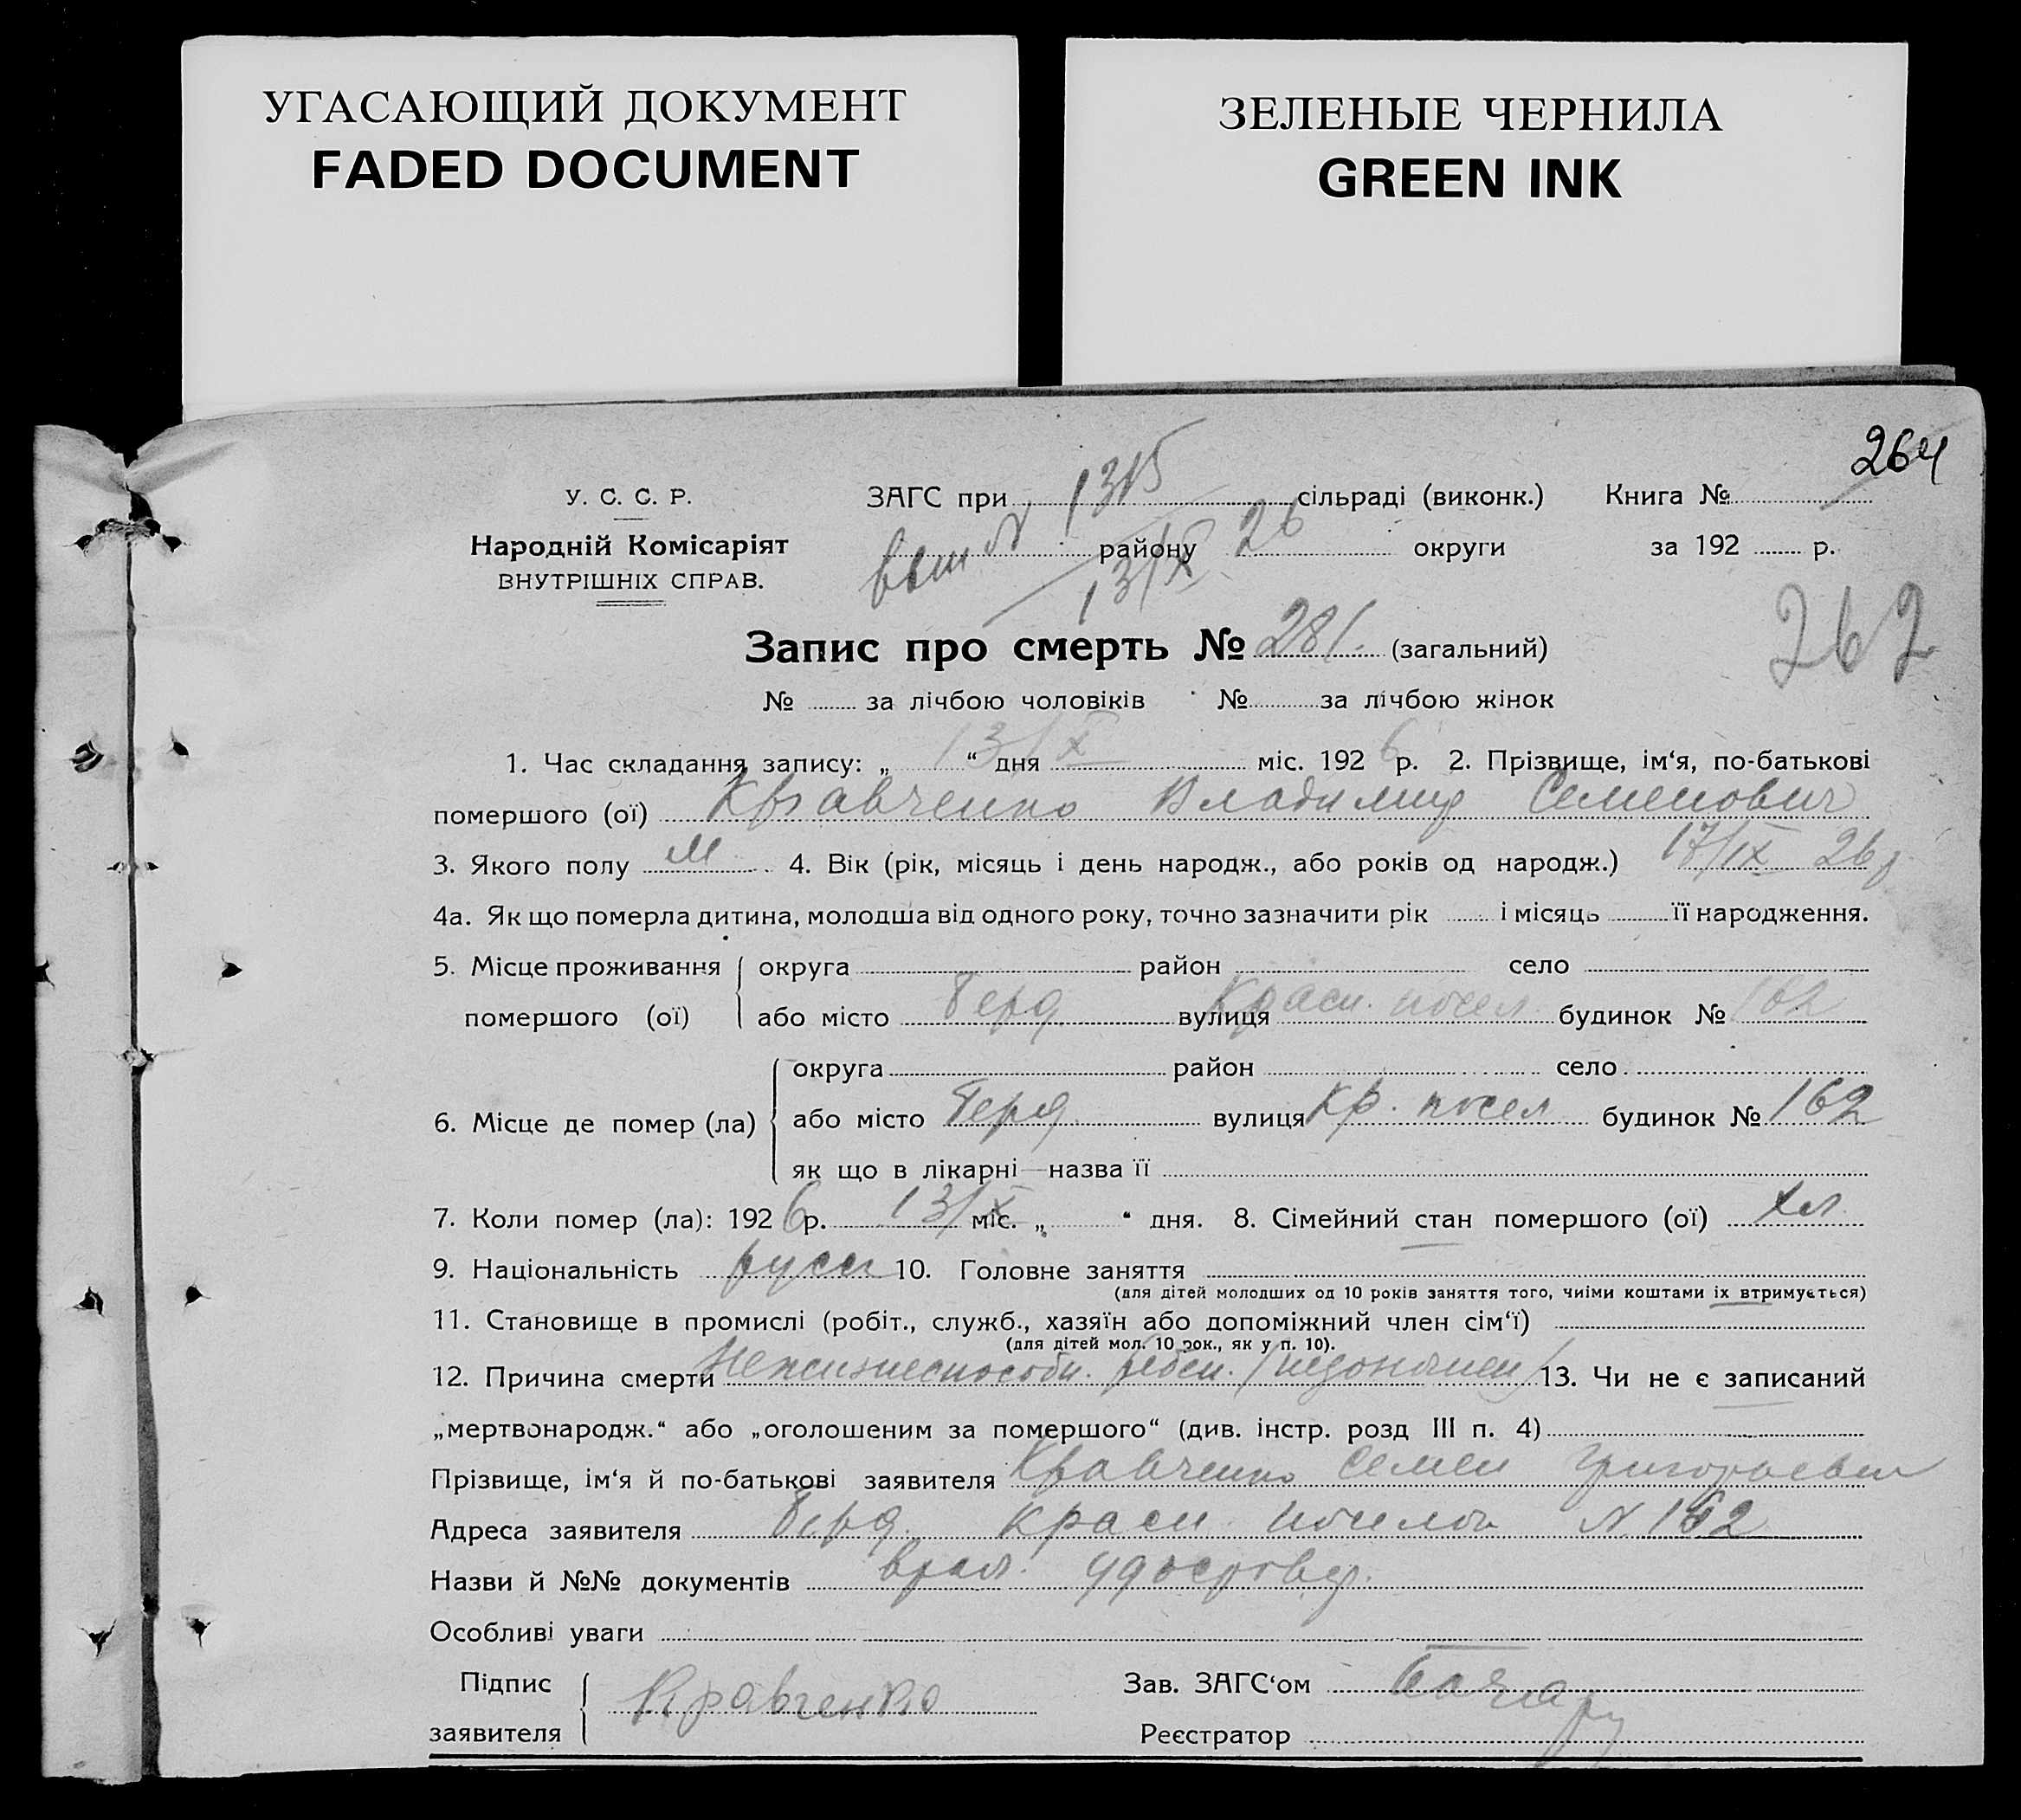 УГАСАЮЩИЙ ДОКУМЕНТ
FADED DOCUMENT
ЗЕЛЕНЫЕ ЧЕРНИЛА
GREEN INK
264
У. С. С. Р.
Народній Комісаріят
ВНУТРІШНІХ СПРАВ.
ЗАГС при 1315 сільраді (виконк.) Книга №
вып N району 26 округи за 192 р.
13/X
262
Запис про смерть № 281. (загальний)
№ за лічбою чоловіків № за лічбою жінок
1. Час складання запису: „ 13/X “ дня міс. 1926 р. 2. Прізвище, ім‘я, по-батькові
помершого (ої) Кравченко Владимир Семенович
3. Якого полу М 4. Вік (рік, місяць і день народж., або років од народж.) 17/IX 26 р
4а. Як що померла дитина, молодша від одного року, точно зазначити рік і місяць її народження.
5. Місце проживання округа район село
помершого (ої) або місто Берд. вулиця Красн. посел. будинок № 162
округа район село
6. Місце де помер (ла) або місто Берд. вулиця Кр. посел будинок № 162
як що в лікарні—назва її
7. Коли помер (ла): 1926 р. 13/X міс. „ “ дня. 8. Сімейний стан помершого (ої) хл
9. Національність русск 10. Головне заняття
(для дітей молодших од 10 років заняття того, чиїми коштами їх втримується)
11. Становище в промислі (робіт., служб., хазяїн або допоміжний член сім‘ї)
(для дітей мол. 10 рок., як у п. 10).
12. Причина смерти Нежизнеспособн. ребен. /недоношен/ 13. Чи не є записаний
„мертвонародж.“ або „оголошеним за помершого“ (див. інстр. розд III п. 4)
Прізвище, ім‘я й по-батькові заявителя Кравченко Семен Григорьевич
Адреса заявителя Берд. красн. поселок N 162
Назви й №№ документів врач. удостовер.
Особливі уваги
Підпис
заявителя Кравченко
Зав. ЗАГС‘ом
Реєстратор